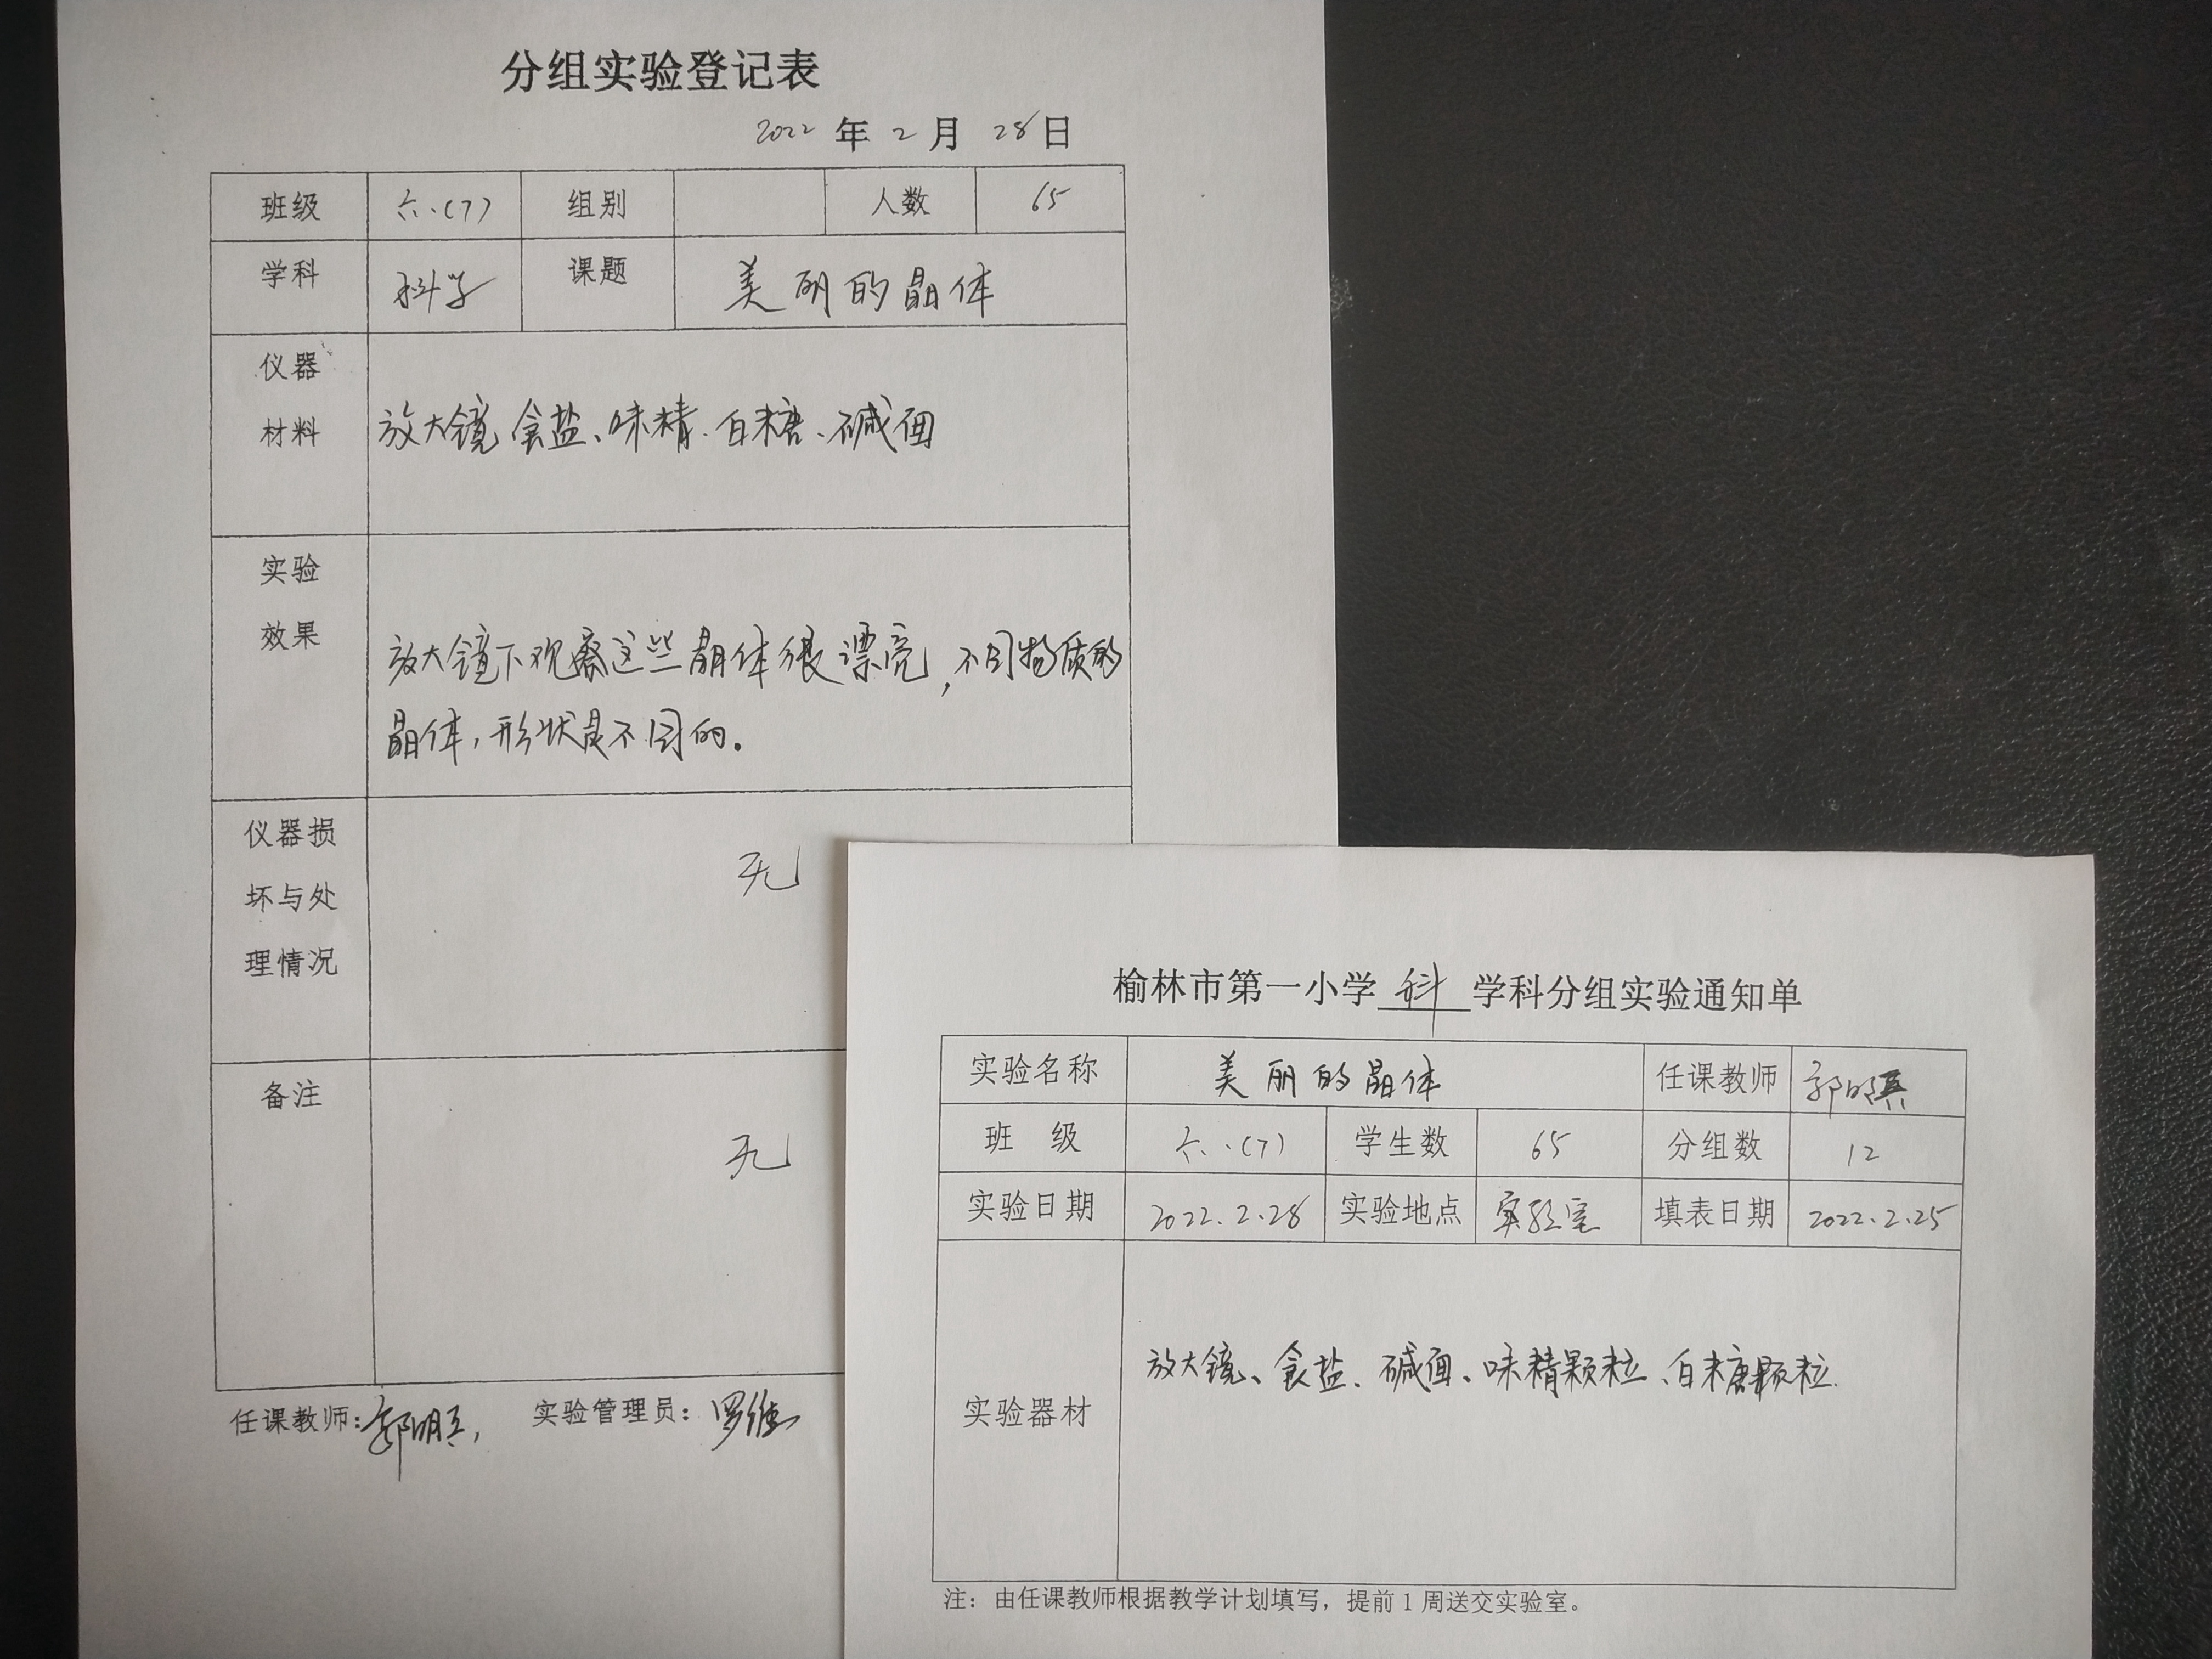 分组实验登记表
2022 年 2 月 28 日
班级 六、(7) 组别 人数 65
学科 科学 课题 美丽的晶体
仪器
材料 放大镜 食盐、味精、白糖、碱面
实验
效果
放大镜下观察这些晶体很漂亮,不同物质的
晶体,形状是不同的。
仪器损 无
坏与处
理情况
备注
无
任课教师: 郭明 实验管理员: 罗
榆林市第一小学 科 学科分组实验通知单
实验名称 美丽的晶体 任课教师 郭明
班 级 六、(7) 学生数 65 分组数 12
实验日期 2022.2.28 实验地点 实验室 填表日期 2022.2.25
放大镜、食盐、碱面、味精颗粒、白糖颗粒.
实验器材
注:由任课教师根据教学计划填写,提前1周送交实验室。